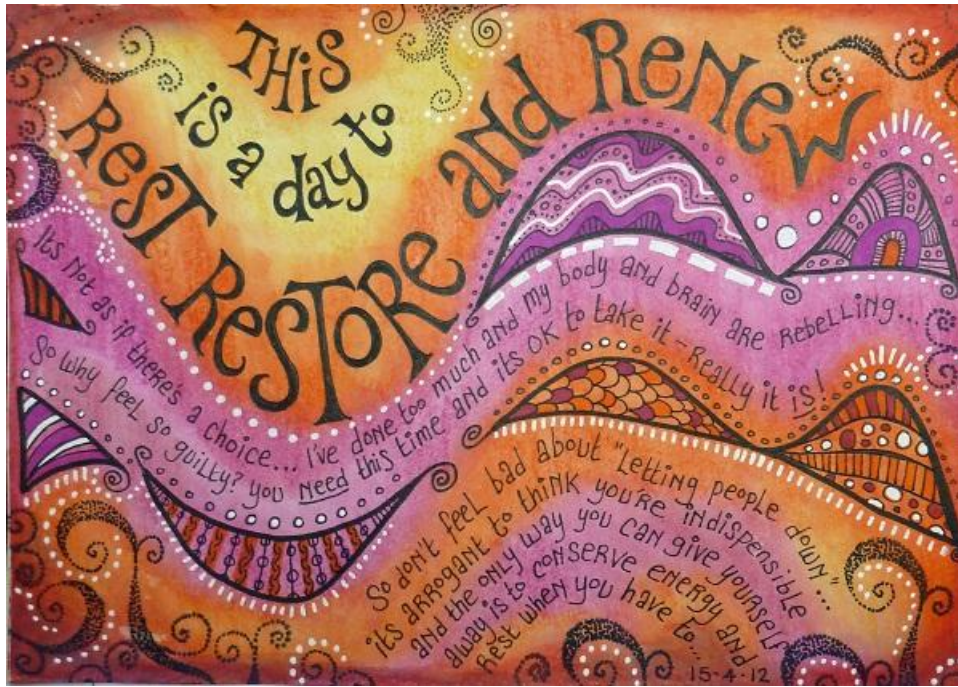 THIS
is a day to
REST RESTORE and RENEW
Its Not as if there's a choice... I've done too much and my body and brain are REBELLING...
So why feel so guilty? you Need this time and its OK to take it - Really it is!
So don't feel bad about "Letting people down"...
its arrogant to think you're indispensible
and the only way you can give yourself
away is to conserve energy and
Rest when you have to...
15-4-12